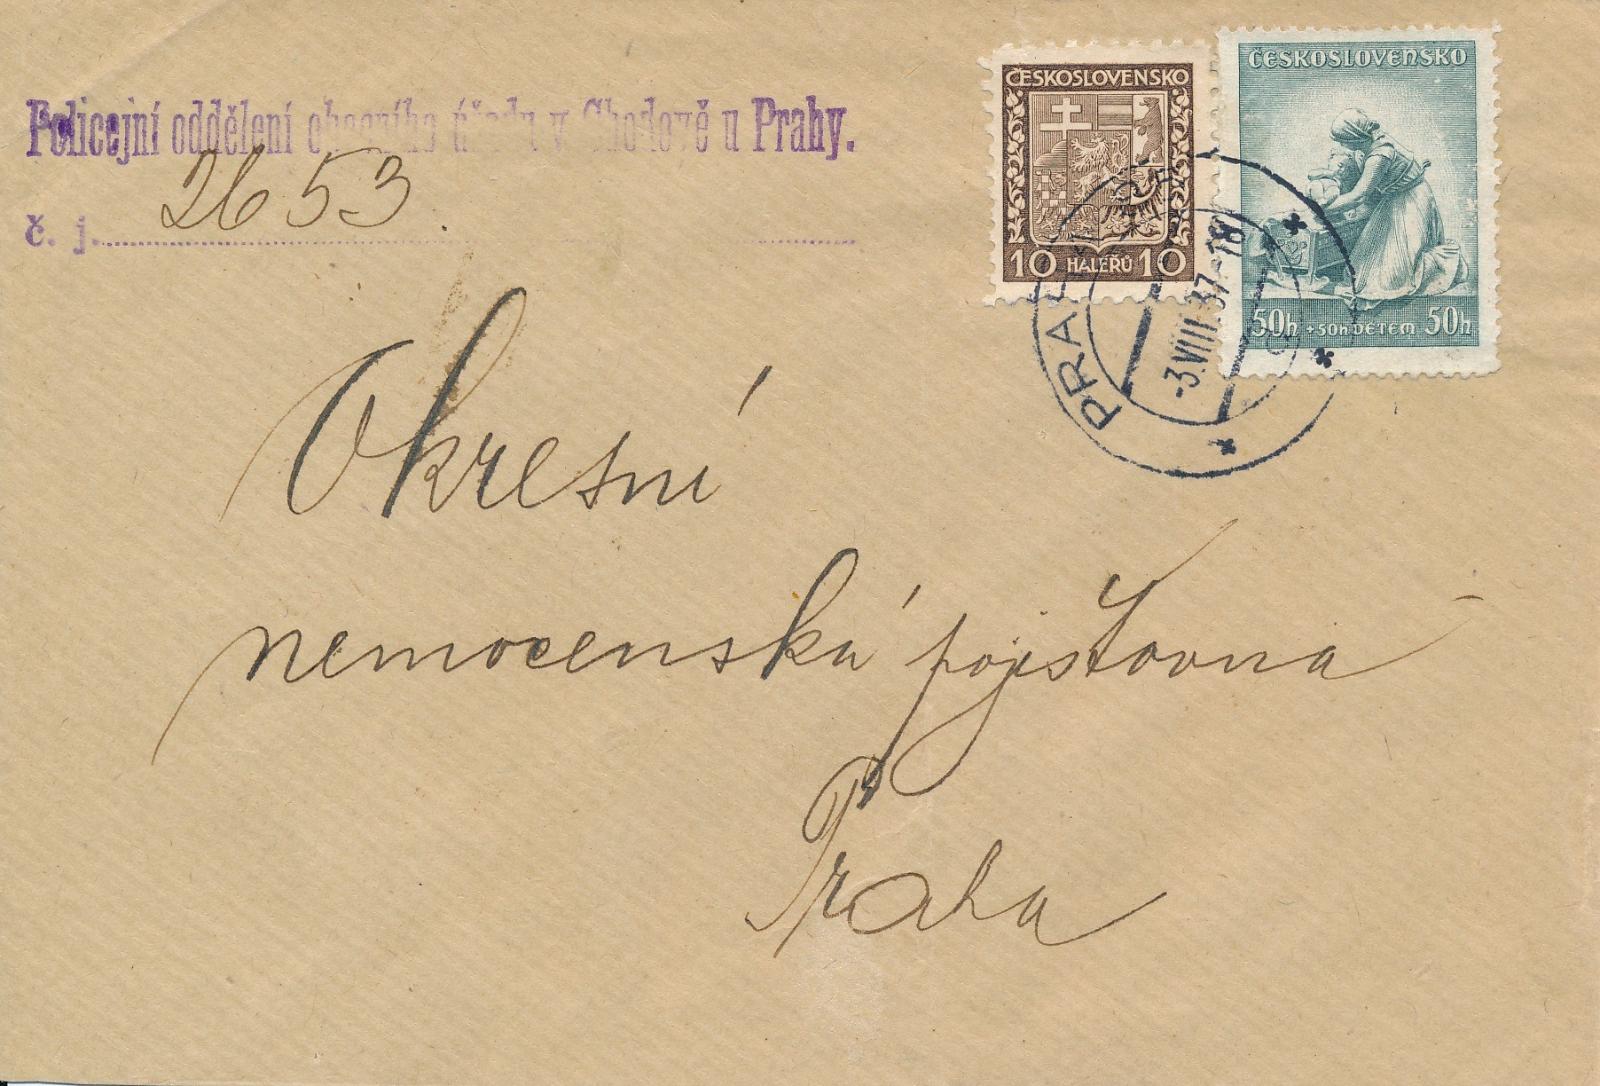 Policejní oddělení obecního úřadu v Chodově u Prahy.
č. j. 2653
ČESKOSLOVENSKO
10 HALÉŘŮ 10
ČESKOSLOVENSKO
50h + 50h DĚTEM 50h
PRAHA
-3.VIII.37-18
Okresní
nemocenská pojišťovna
Praha